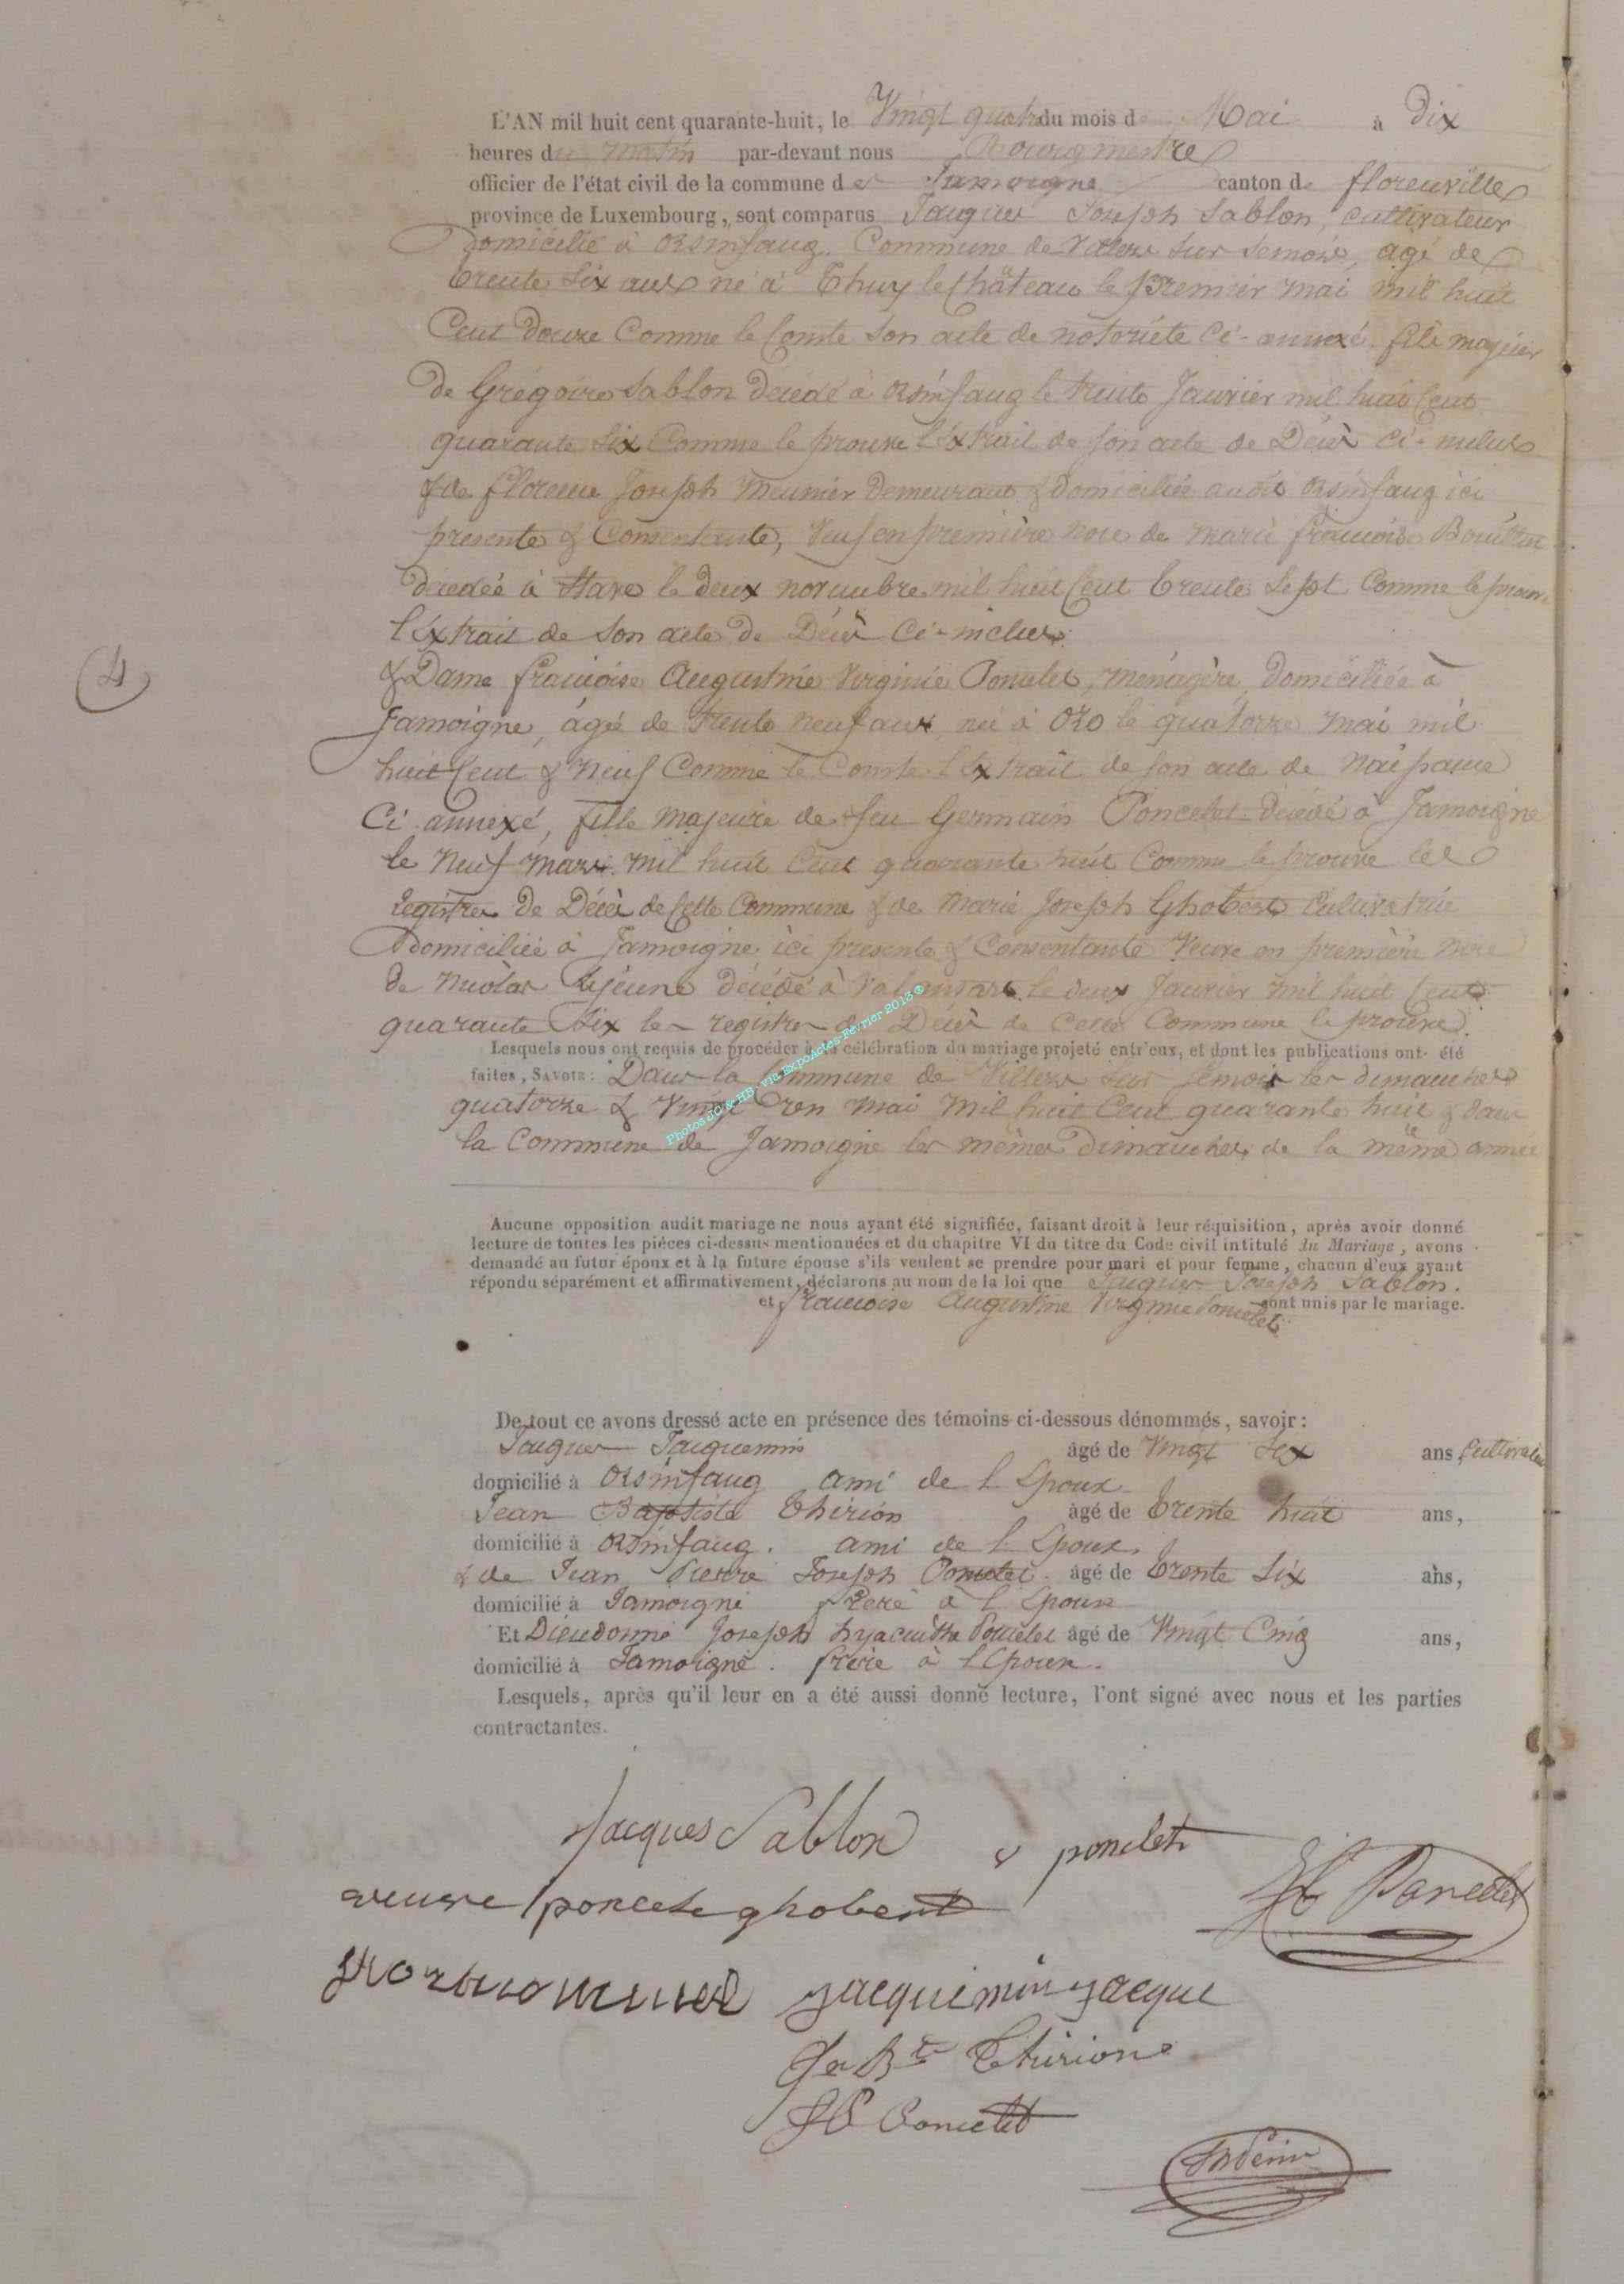 L'AN mil huit cent quarante-huit, le Vingt quatre du mois de Mai à Dix
heures du matin par-devant nous Bourgmestre
officier de l'état civil de la commune de Jamoigne canton de florenville
province de Luxembourg, sont comparus Jacques Joseph Sablon, cultivateur
domicilié à Orsinfaing. Commune de Villers sur Semois, agé de
trente Six ans né à Thuy le Château le premier mai mil huit
Cent Douze Comme le Conste Son acte de notoriété Ci-annexé. fils majeur
de Grégoire Sablon décédé à Orsinfaing le trente Janvier mil huit Cent
quarante Six Comme le prouve l'Extrait de son acte de Décès Ci-inclus
& de florence Joseph Meunier Demeurant & domiciliée audit Orsinfaing ici
presente & Consentante, Veuf en première noce de Marie françoise
décédée à le deux novembre mil huit Cent trente Sept Comme le prouve
l'Extrait de Son acte de Décès Ci-inclus.
& Dame françoise Augustine Virginie Poncelet, ménagère, domiciliée à
Jamoigne, âgé de trente neuf ans, née à le quatorze mai mil
huit Cent & neuf Comme le Conste l'Extrait de son acte de naissance
Ci annexé, fille majeure de feu Germain Poncelet décédé à Jamoigne
le Neuf Mars mil huit Cent quarante huit Comme le prouve les
registres de Décès de Cette Commune & de Marie Joseph Ghobert Cultivatrice
domiciliée à Jamoigne ici presente & Consentante Veuve en première noce
de Nicolas Lejeune décédé à Valansart le deux Janvier mil huit Cent
quarante Six les registres de Décès de Cette Commune le prouve.
Lesquels nous ont requis de procéder à la célébration du mariage projeté entr'eux, et dont les publications ont été
faites, SAVOIR: Dans la Commune de Villers sur Semois les dimanches
quatorze & Vingt un mai mil huit Cent quarante huit & dans
la Commune de Jamoigne les mêmes Dimanches de la même année
Photos JC & HB, via ExpoActes-Février 2013 ®
Aucune opposition audit mariage ne nous ayant été signifiée, faisant droit à leur réquisition, après avoir donné
lecture de toutes les piéces ci-dessus mentionnées et du chapitre VI du titre du Code civil intitulé du Mariage, avons
demandé au futur époux et à la future épouse s'ils veulent se prendre pour mari et pour femme, chacun d'eux ayant
répondu séparément et affirmativement, déclarons au nom de la loi que Jacques Joseph Sablon.
et françoise Augustine Virginie Poncelet sont unis par le mariage.
De tout ce avons dressé acte en présence des témoins ci-dessous dénommés, savoir:
Jacques Jacquemin âgé de Vingt Six ans, Cultivateur
domicilié à Orsinfaing ami de l'Epoux
Jean Baptiste Thirion âgé de trente huit ans,
domicilié à Orsinfaing. ami de l'Epoux,
& de Jean Pierre Joseph Poncelet âgé de trente Six ans,
domicilié à Jamoigne frere à l'Epouse
Et Dieudonné Joseph hyacinthe Poncelet âgé de Vingt Cinq ans,
domicilié à Jamoigne. frère à l'Epouse.
Lesquels, après qu'il leur en a été aussi donné lecture, l'ont signé avec nous et les parties
contractantes.
Jacques Sablon v poncelet
veuve poncelet ghobert Poncelet
jacquemin jacque
Jn Bte Thirion
JP Poncelet
4